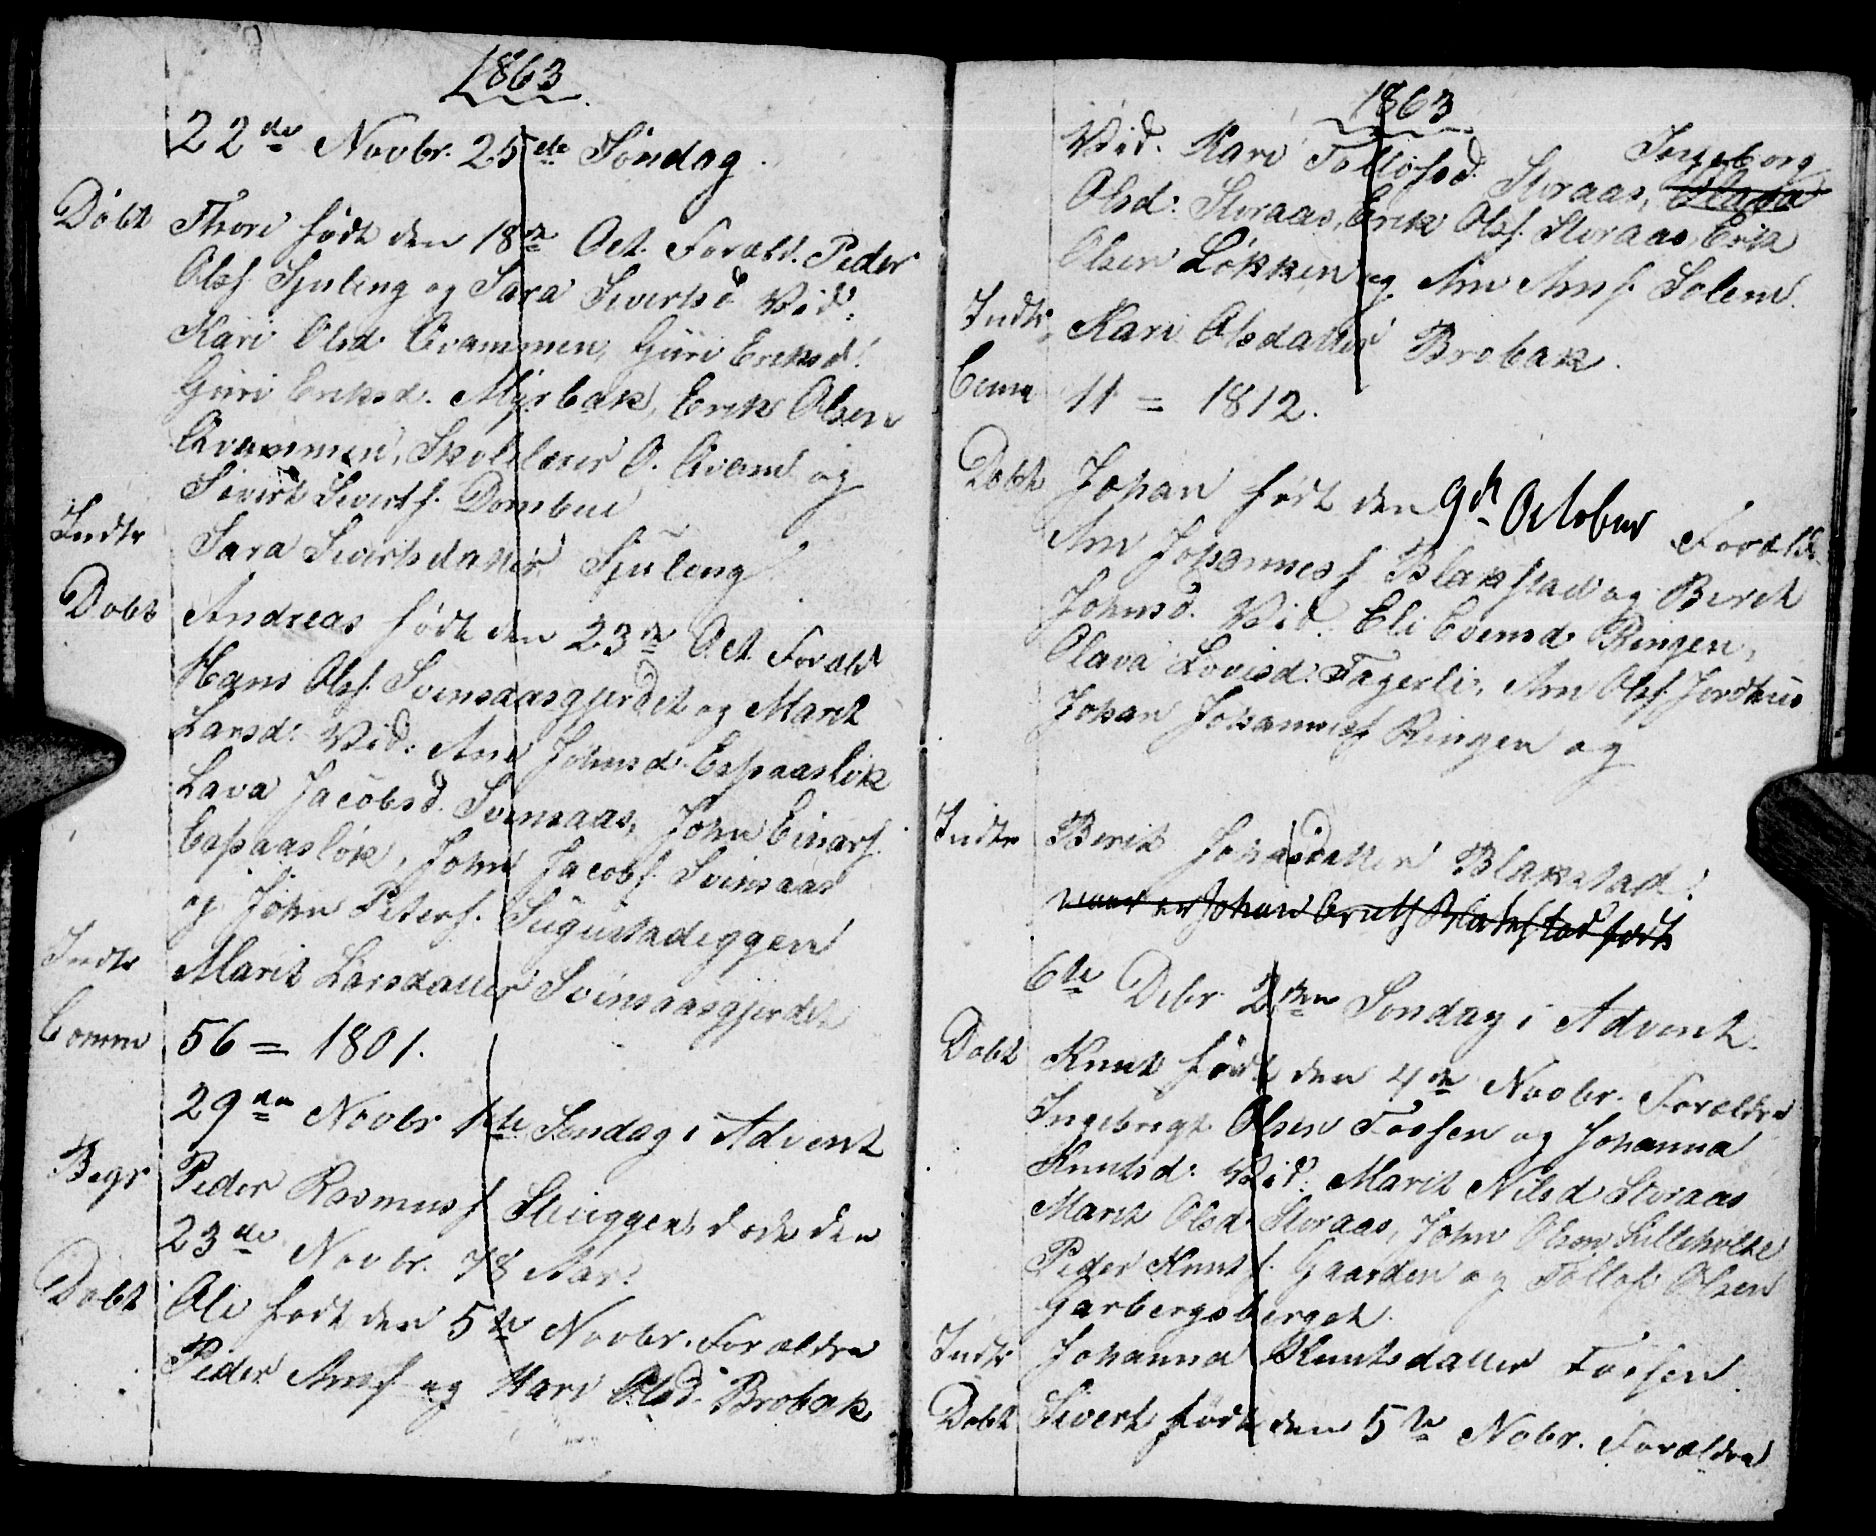 1863
22de Novbr. 25de Søndag.
Døbt Thore født den 18de Oct. Foræld. Peder
Olsf. Sjuleng og Sara Sivertsd Vid.
Kari Olsd. Gvammen, Guri Eriksd.
Guri Eriksd. Myrbak, Erik Olsen
Gvammen, Skolelærer O. Gvam og
Sivert Sivertsf. Dombue
Indtr Sara Sivertsdatter Sjuleng
Døbt Andreas født den 23de Oct Foræld
Hans Olsf. Svinsaasgjerdet og Marit
Larsd. Vid. Ane Johnsd. Espaasløk
Lava Jacobsd. Svinsaas, John Einarsf.
Espaasløk, John Jacobsf. Svinsaas
og John Petersf.
Indtr Marit Larsdatter Svinsaasgjerdet
Comm 56 = 1801.
29de Novbr 1ste Søndag i Advent
Begr Peder Rasmusf Steiggen, døde den
23de Novbr. 78 Aar.
Døbt Ole født den 5te Novbr. Forældre
Peder Arnsf og Kari Olsd. Brobak
1863
Vid. Kari Tollofsd. Storaas, Ingeborg
Olava
Olsd. Storaas, Erik Olsf. Storaas, Erik
Olsen Løkken og Arn Arnsf. Solem.
Indtr. Kari Olsdatter Brobak.
Comm 11 = 1812.
Døbt Johan født den 9de October Foræld.
Arn Johannesf Blakstad og Berit
Johnsd. Vid. Eli Evensd. Ringen,
Olava Lovisd. Fagerli, Arn Olsf. Jordhus
Johan Johannesf Ringen og
Indtr Berit Johnsdatter Blakstad.
naar er Johan Arntsf Blakstad født
6te Debr 2den Søndag i Advent.
Døbt Knut født den 4de Novbr. Forældre
Ingebrigt Olsen Fossen og Johanna
Knutsd. Vid. Marit Nilsd Storaas
Marit Olsd. Storaas, John Olsen Lilleholte
Peder Knutsf. Gaarden og Tollof Olsen
Garbergsberget.
Indtr Johanna Knutsdatter Fossen.
Døbt Sivert født den 5te Nobr. Forældre